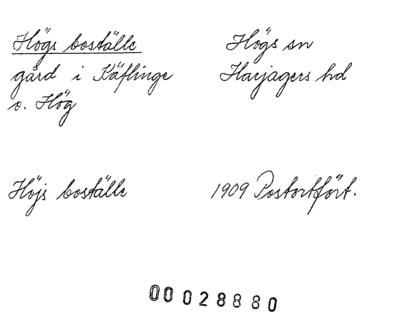 Högs boställe
gård i Käflinge
o. Hög
Högs sn
Harjagers hd
Höjs boställe
1909 Postortfört.
00 028880